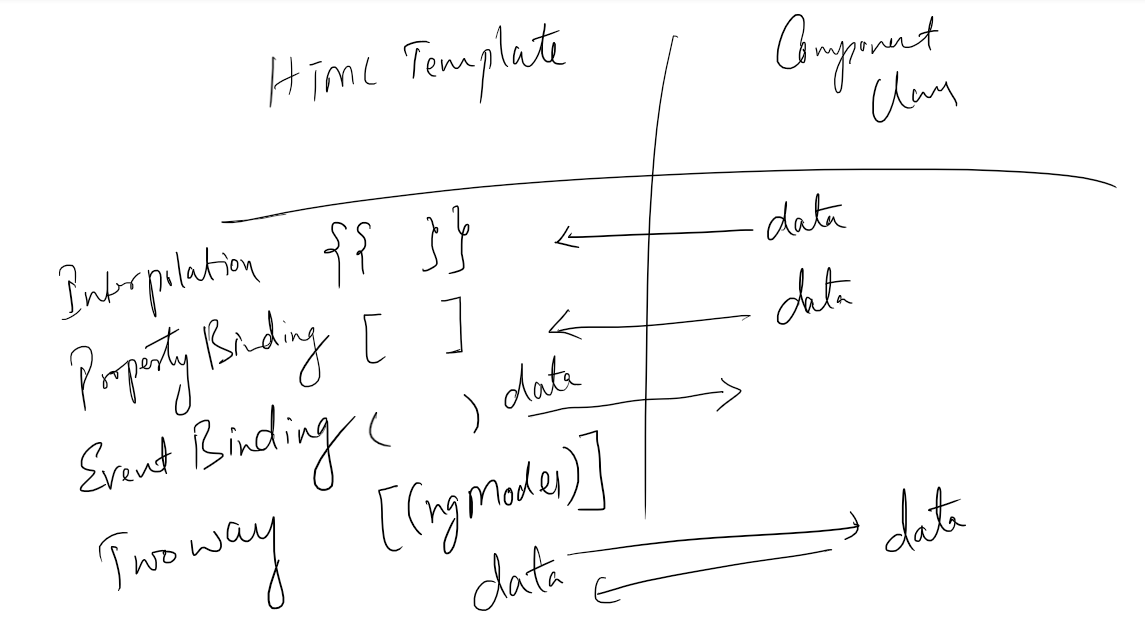 HTML Template
Component
Class
Interpolation {{ }} data
Property Binding [ ] data
Event Binding ( ) data
Two way [(ngModel)]
data data